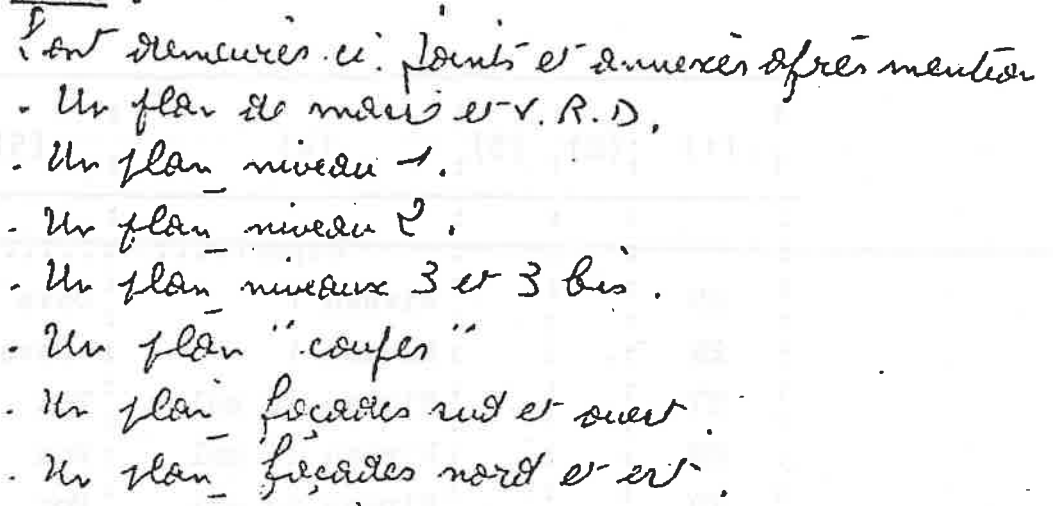 Sont demeurés ci. joints et annexés après mention
- Un plan de masse et V.R.D.
- Un plan niveau 1.
- Un plan niveau 2.
- Un plan niveaux 3 et 3 bis.
- Un plan "coupes"
- Un plan façades sud et ouest.
- Un plan façades nord et est.